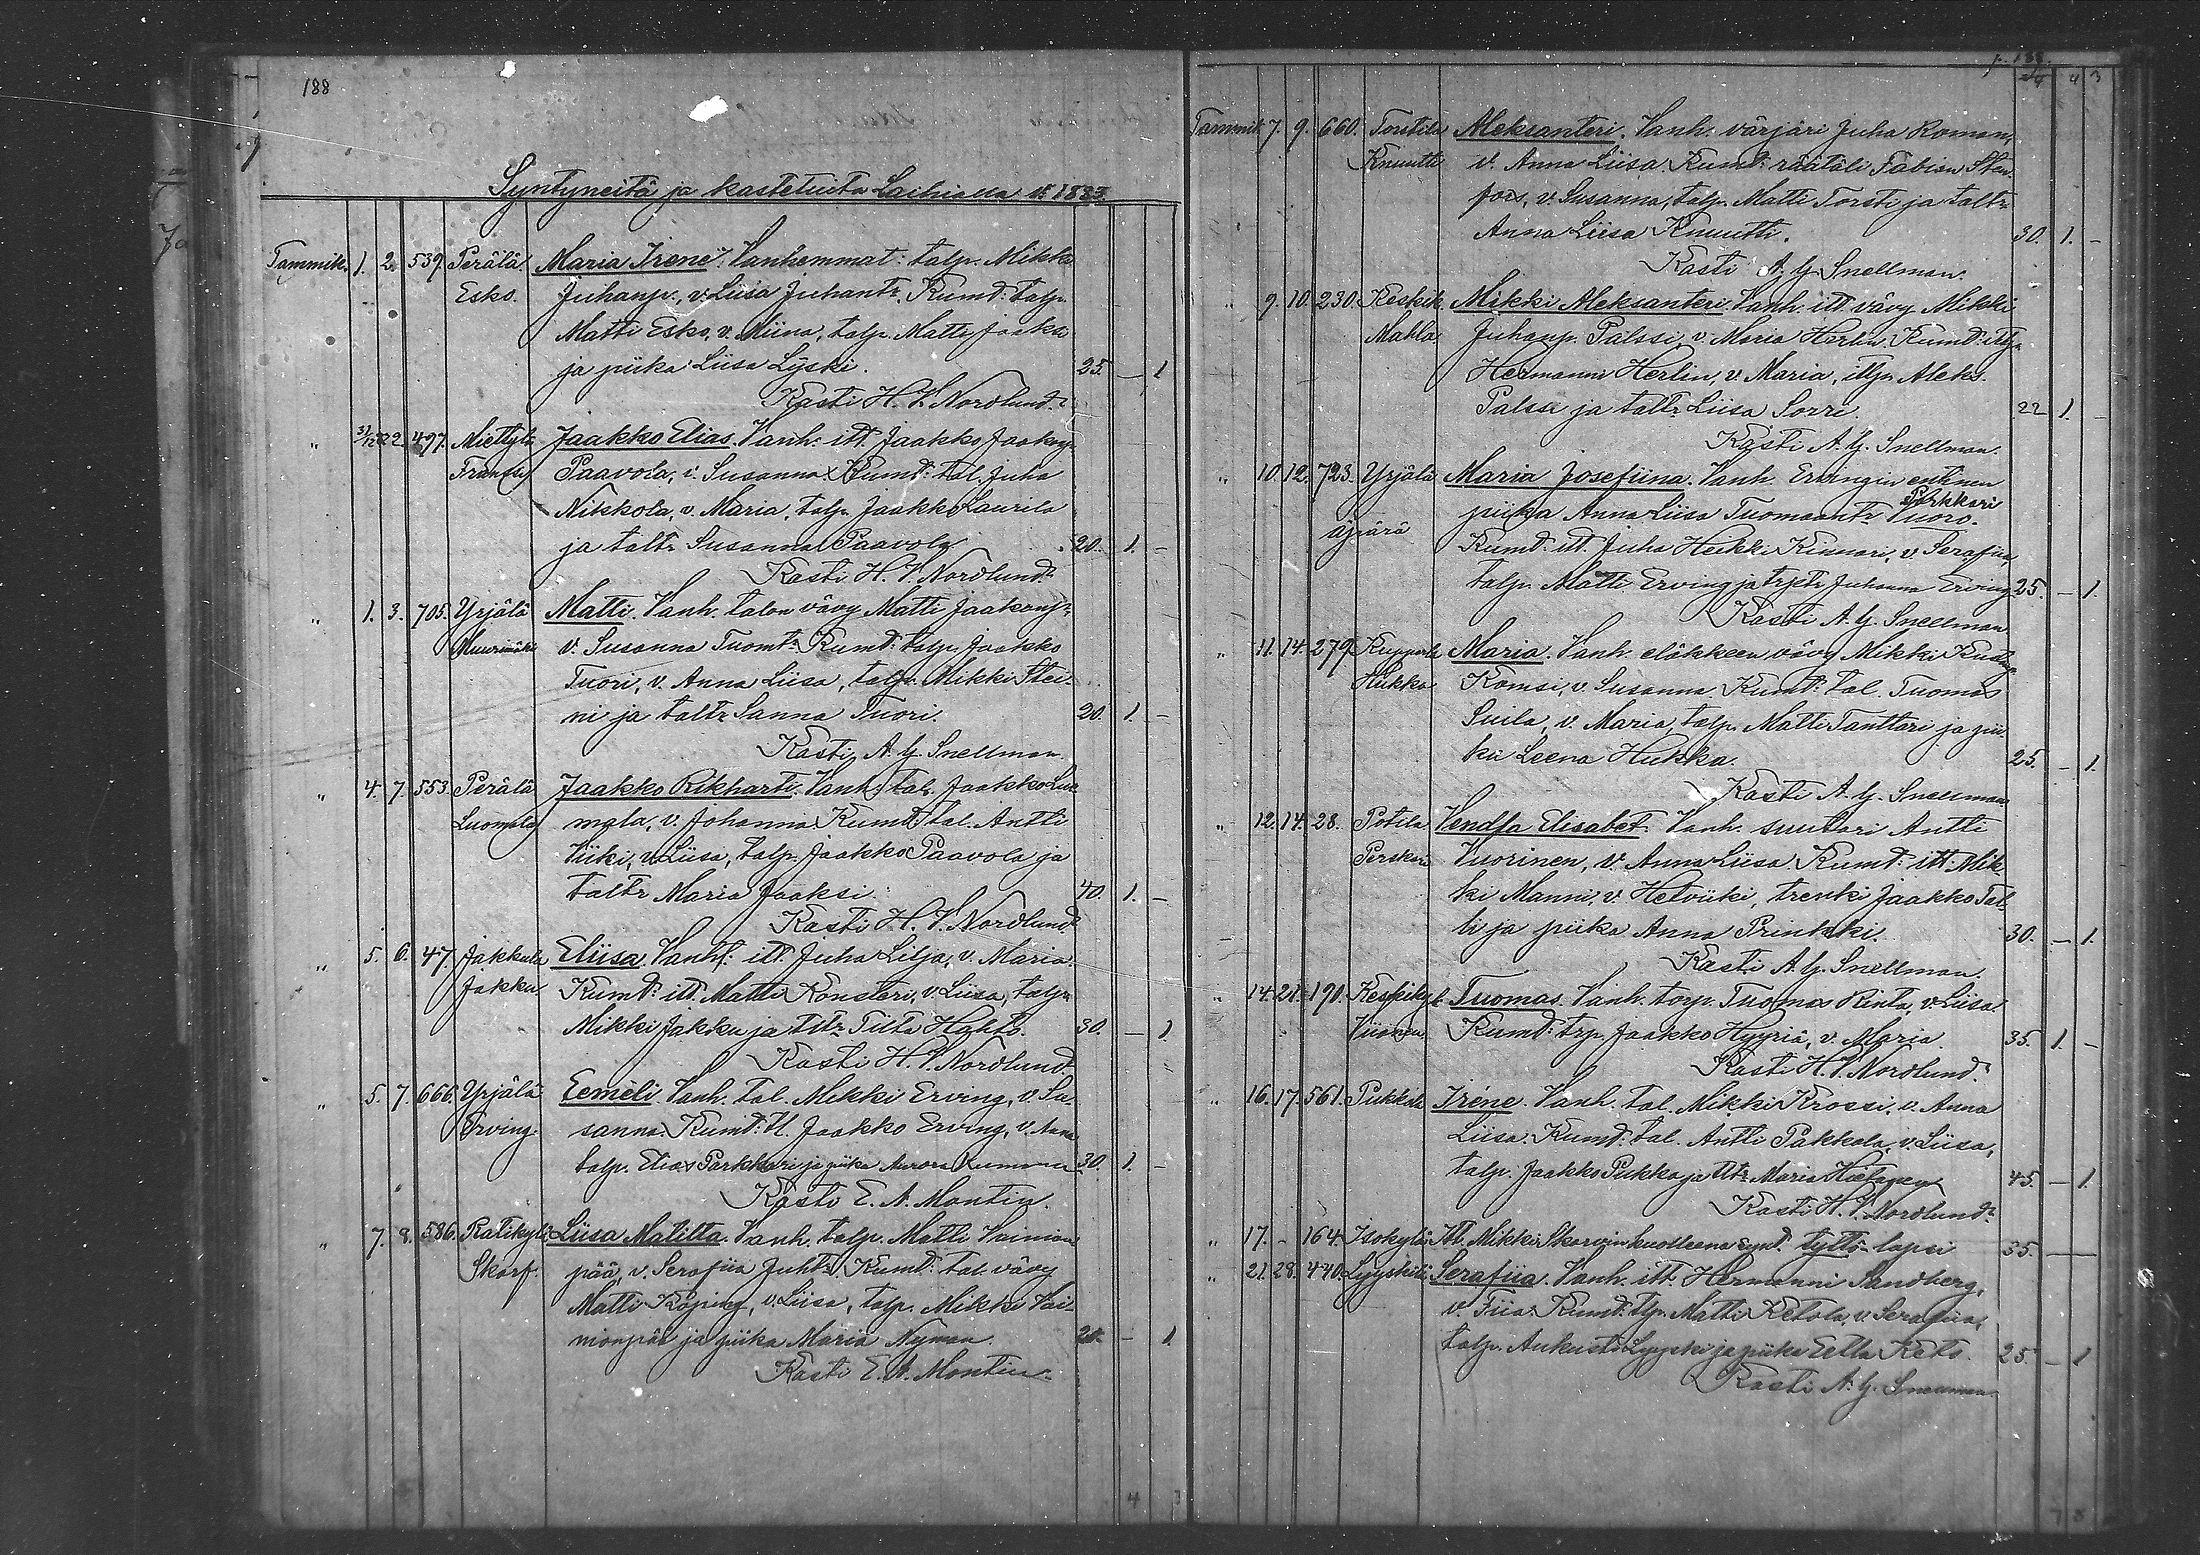 188
Syntyneitä ja kastetuita Laihialla v. 1883.
Tammik. 1. 2. 539. Perälä Maria Irene. Vanhemmat: talp. Mikki
Esko. Juhanp., v. Liisa Juhantr. Kumd: talp.
Matti Esko, v. Miina, talp. Matti Jaaksi
ja piika Liisa Lyski. 25. — 1
Kasti H. V. Nordlund.
" 31/12 82 2. 497. Miettylä Jaakko Elias. Vanh: itt. Jaakko Jaakonp.
Franssi Paavola, v. Susanna. Kumd: tal. Juha
Nikkola, v. Maria, talp. Jaakko Laurila
ja taltr Susanna Paavola 20. 1. —
Kasti H. V. Nordlund.
" 1. 3. 705. Yrjälä Matti. Vanh. talon vävy Matti Jaakonp.
Muurimäki v. Susanna Tuomtr. Kumd: talp. Jaakko
Tuori, v. Anna Liisa, talp. Mikki Stei-
ni ja taltr Sanna Tuori. 20. 1. —
Kasti A. G. Snellman.
" 4. 7. 553. Perälä Jaakko Rikharti. Vanh: tal. Jaakko Luo-
Luomala mala, v. Johanna. Kumd: tal. Antti
Viiki, v. Liisa, talp. Jaakko Paavola ja
taltr Maria Jaaksi. 40. 1. —
Kasti H. V. Nordlund
" 5. 6. 47. Jakkula Eliisa. Vanh: itt. Juha Lilja, v. Maria.
Jakku Kumd: itt. Matti Konsteri, v. Liisa, talp.
Mikki Jakku ja titr Tiita Hahto. 30. — 1
Kasti H. V. Nordlund.
" 5. 7. 666. Yrjälä Eemeli. Vanh. tal. Mikki Erving, v. Su-
Erving. sanna. Kumd: tl. Jaakko Erving, v. Anna
talp. Elias Parkkari ja piika Aurora 30. 1. —
Kasti E. A. Montin.
" 7. 8. 586. Ratikylä Liisa Matilta. Vanh. talp. Matti Vainion-
Skarf. pää, v. Serafiia Juhtr. Kumd: tal. vävy
Matti Köping, v. Liisa, talp. Mikki Vai-
nionpää ja piika Maria Nyman. 20. — 1
Kasti E. A. Montin.
p. 188.
4 3
Tammik. 7. 9. 660. Torstila Aleksanteri. Vanh. värjäri Juha Roman,
Knuutti v. Anna Liisa. Kumd: räätäli Fabian Sten-
fors, v. Susanna, talp. Matti Torsti ja taltr
Anna Liisa Knuutti. 30. 1. —
Kasti A. G. Snellman.
" 9. 10. 230. Keskik. Mikki Aleksanteri. Vanh. itt. vävy Mikki
Mahla Juhanp. Palssi, v. Maria Herlin. Kumd: ittp.
Hermanni Herlin, v. Maria, ittp. Aleks.
Palssi ja taltr Liisa Sorri. 22 1. —
Kasti A. G. Snellman.
" 10. 12. 723. Yrjälä Maria Josefiina. Vanh. Ervingin entinen
äpärä piika Anna Liisa Tuomaantr Tuoro. Parkkari
Kumd: itt. Juha Heikki Kinnari, v. Serafiia,
talp. Matti Erving ja trptr Juhanna Erving 25. — 1.
Kasti A. G. Snellman
" 11. 14. 279. Kupparla Maria. Vanh. eläkkeen vävy Mikki
Hukka Komsi, v. Susanna. Kumd: tal. Tuomas
Suila, v. Maria, talp. Matti Tanttari ja pii-
ka Leena Hukka. 25. — 1.
Kasti A. G. Snellman
" 12. 14. 28. Potila Vendla Elisabet. Vanh. suutari Antti
Perskar Vuorinen, v. Anna Liisa. Kumd: itt. Mik-
ki Manni, v. Hetviiki, trenki Jaakko Tal-
li ja piika Anna Prinkki. 30. — 1.
Kasti A. G. Snellman.
" 14. 21. 190. Keskikyl. Tuomas. Vanh. torp. Tuomas Rinta, v. Liisa.
Viionen Kumd: trp. Jaakko Hyyriä, v. Maria. 35. 1. —
Kasti H. V. Nordlund.
" 16. 17. 561. Pukkila Iréne. Vanh. tal. Mikki Krossi, v. Anna
Liisa. Kumd: tal. Antti Pakkala, v. Liisa,
talp. Jaakko Pukka ja tltr Maria Hietanen 45. — 1.
Kasti H. V. Nordlund.
" 17. — 164. Isokylä Itl. Mikki Skarvin kuolleena synt. tyttö-lapsi 35. —
" 21. 28. 440. Lyyskilä Serafiia. Vanh. itt. Hermanni Sandberg,
v. Fiia. Kumd: tlp. Matti Ketola, v. Serafiia,
talp. Aukusti Lyyski ja piika Eella Keto. 25 — 1
Kasti A. G. Snellman.